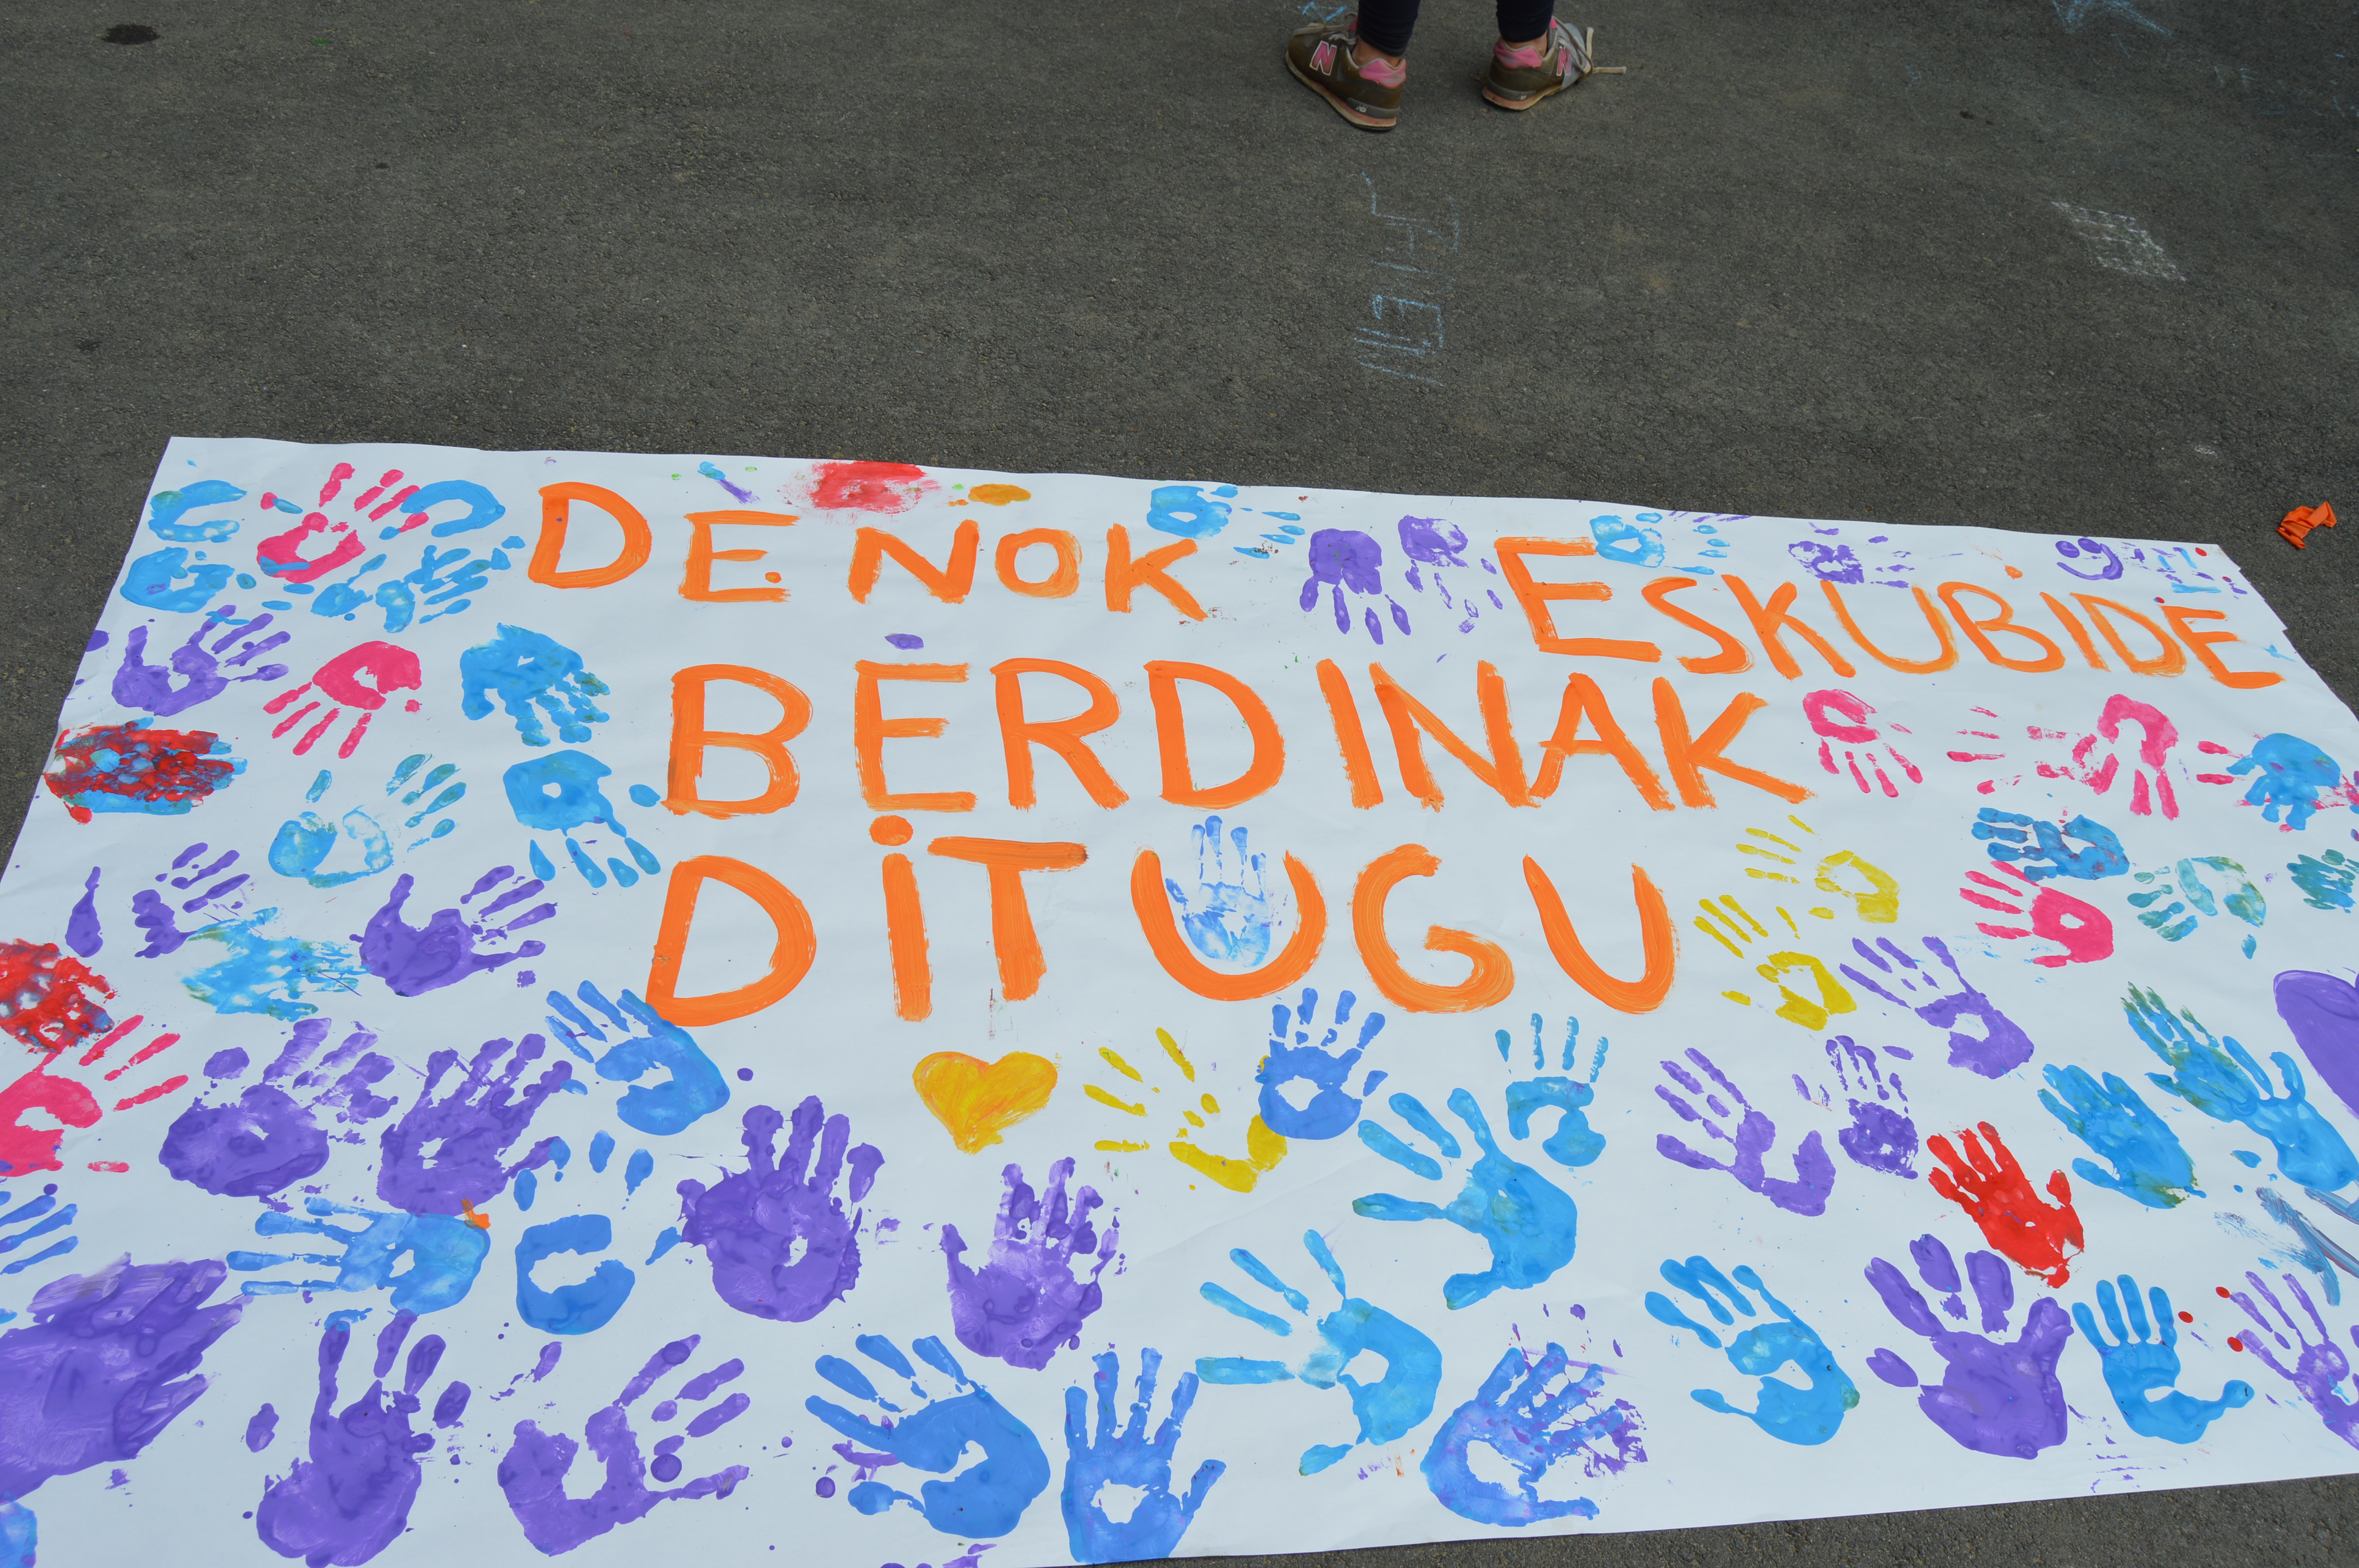 N N
DENOK ESKUBIDE
BERDINAK
DiTUGU